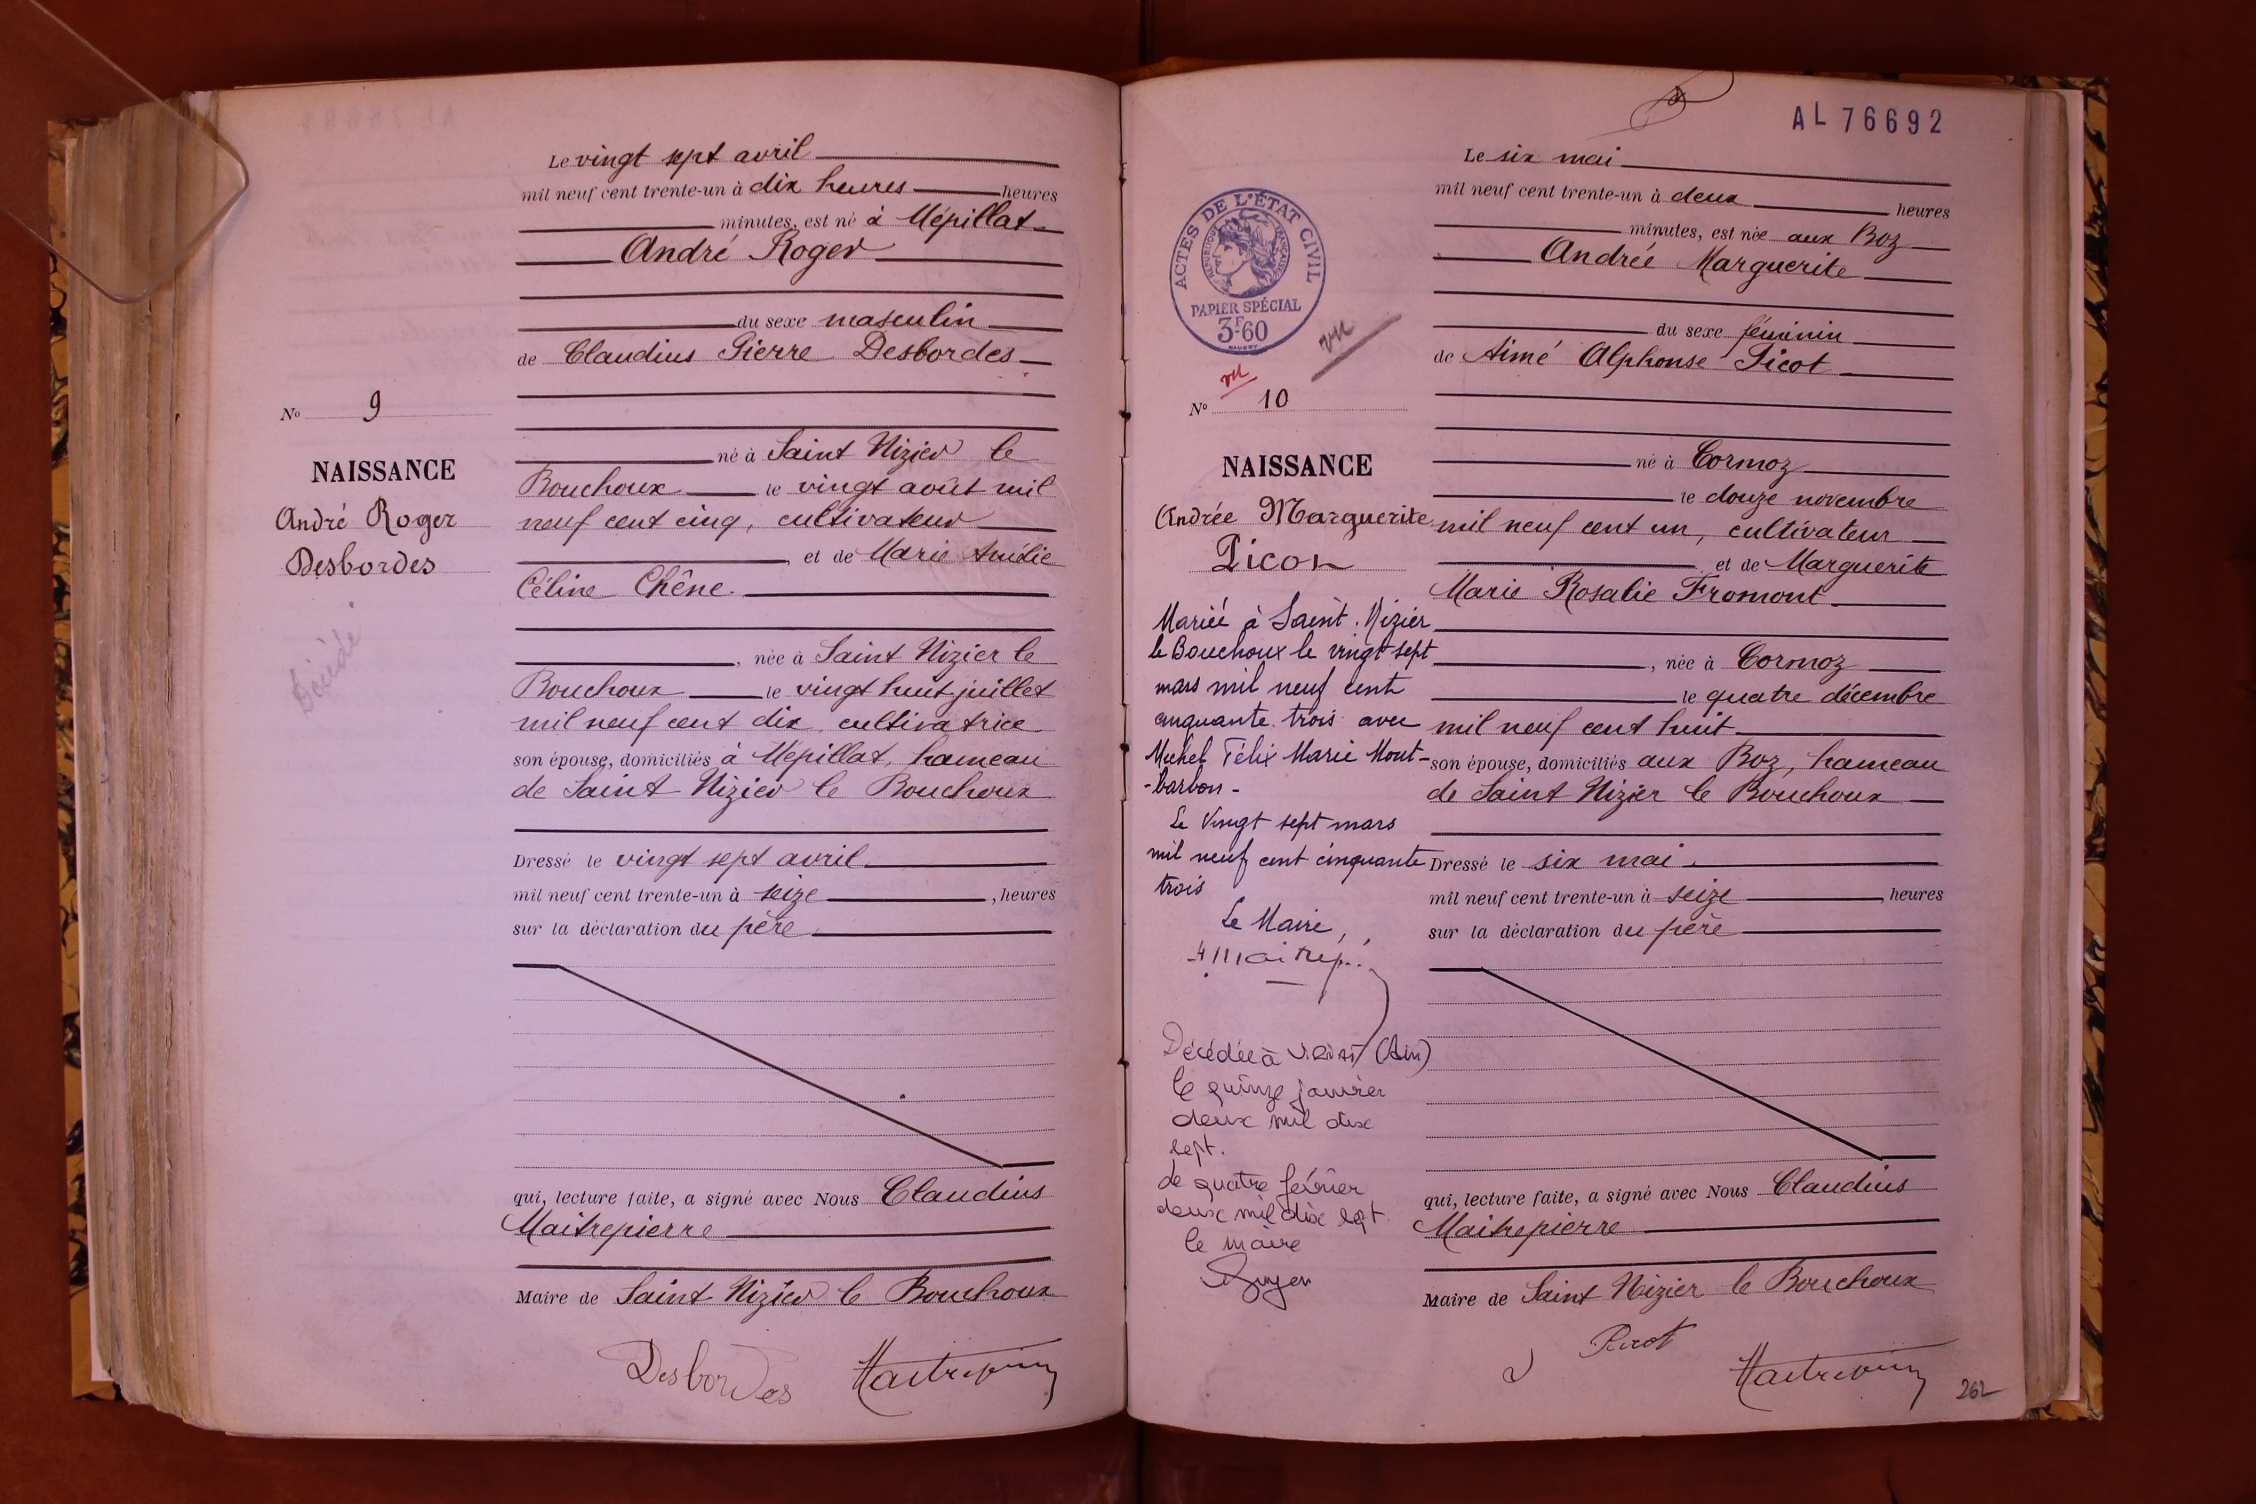 Le vingt sept avril
mil neuf cent trente-un à dix heures heures
minutes, est né à Mépillat
André Roger
du sexe masculin
de Claudius Pierre Desbordes
No 9
né à Saint Nizier le
NAISSANCE
Bouchoux le vingt août mil
André Roger
neuf cent cinq, cultivateur
Desbordes
, et de Marie Amélie
Céline Chêne
Décédé
, née à Saint Nizier le
Bouchoux le vingt huit juillet
mil neuf cent dix, cultivatrice
son épouse, domiciliés à Mépillat, hameau
de Saint Nizier le Bouchoux
Dressé le vingt sept avril
mil neuf cent trente-un à seize , heures
sur la déclaration du père
qui, lecture faite, a signé avec Nous Claudius
Maitrepierre
Maire de Saint Nizier le Bouchoux
Desbordes
AL 76692
Le six mai
mil neuf cent trente-un à deux heures
minutes, est née aux Boz
Andrée Marguerite
ACTES DE L'ÉTAT CIVIL
RÉPUBLIQUE FRANÇAISE
PAPIER SPÉCIAL
3F60
vu
vu
du sexe féminin
de Aimé Alphonse Picot
No 10
né à Cormoz
NAISSANCE
le douze novembre
Andrée Marguerite
mil neuf cent un, cultivateur
Picot
et de Marguerite
Marie Rosalie Fromont
Mariée à Saint Nizier
le Bouchoux le vingt sept
mars mil neuf cent
cinquante trois avec
Michel Félix Marie Mont-
-barbon-
Le vingt sept mars
mil neuf cent cinquante
trois
Le Maire,
Décédée à Viriat (Ain)
le quinze janvier
deux mil dix
sept.
Le quatre février
deux mil dix sept
le maire
, née à Cormoz
le quatre décembre
mil neuf cent huit
son épouse, domiciliés aux Boz, hameau
de Saint Nizier le Bouchoux
Dressé le six mai
mil neuf cent trente-un à seize , heures
sur la déclaration du père
qui, lecture faite, a signé avec Nous Claudius
Maitrepierre
Maire de Saint Nizier le Bouchoux
Picot
262